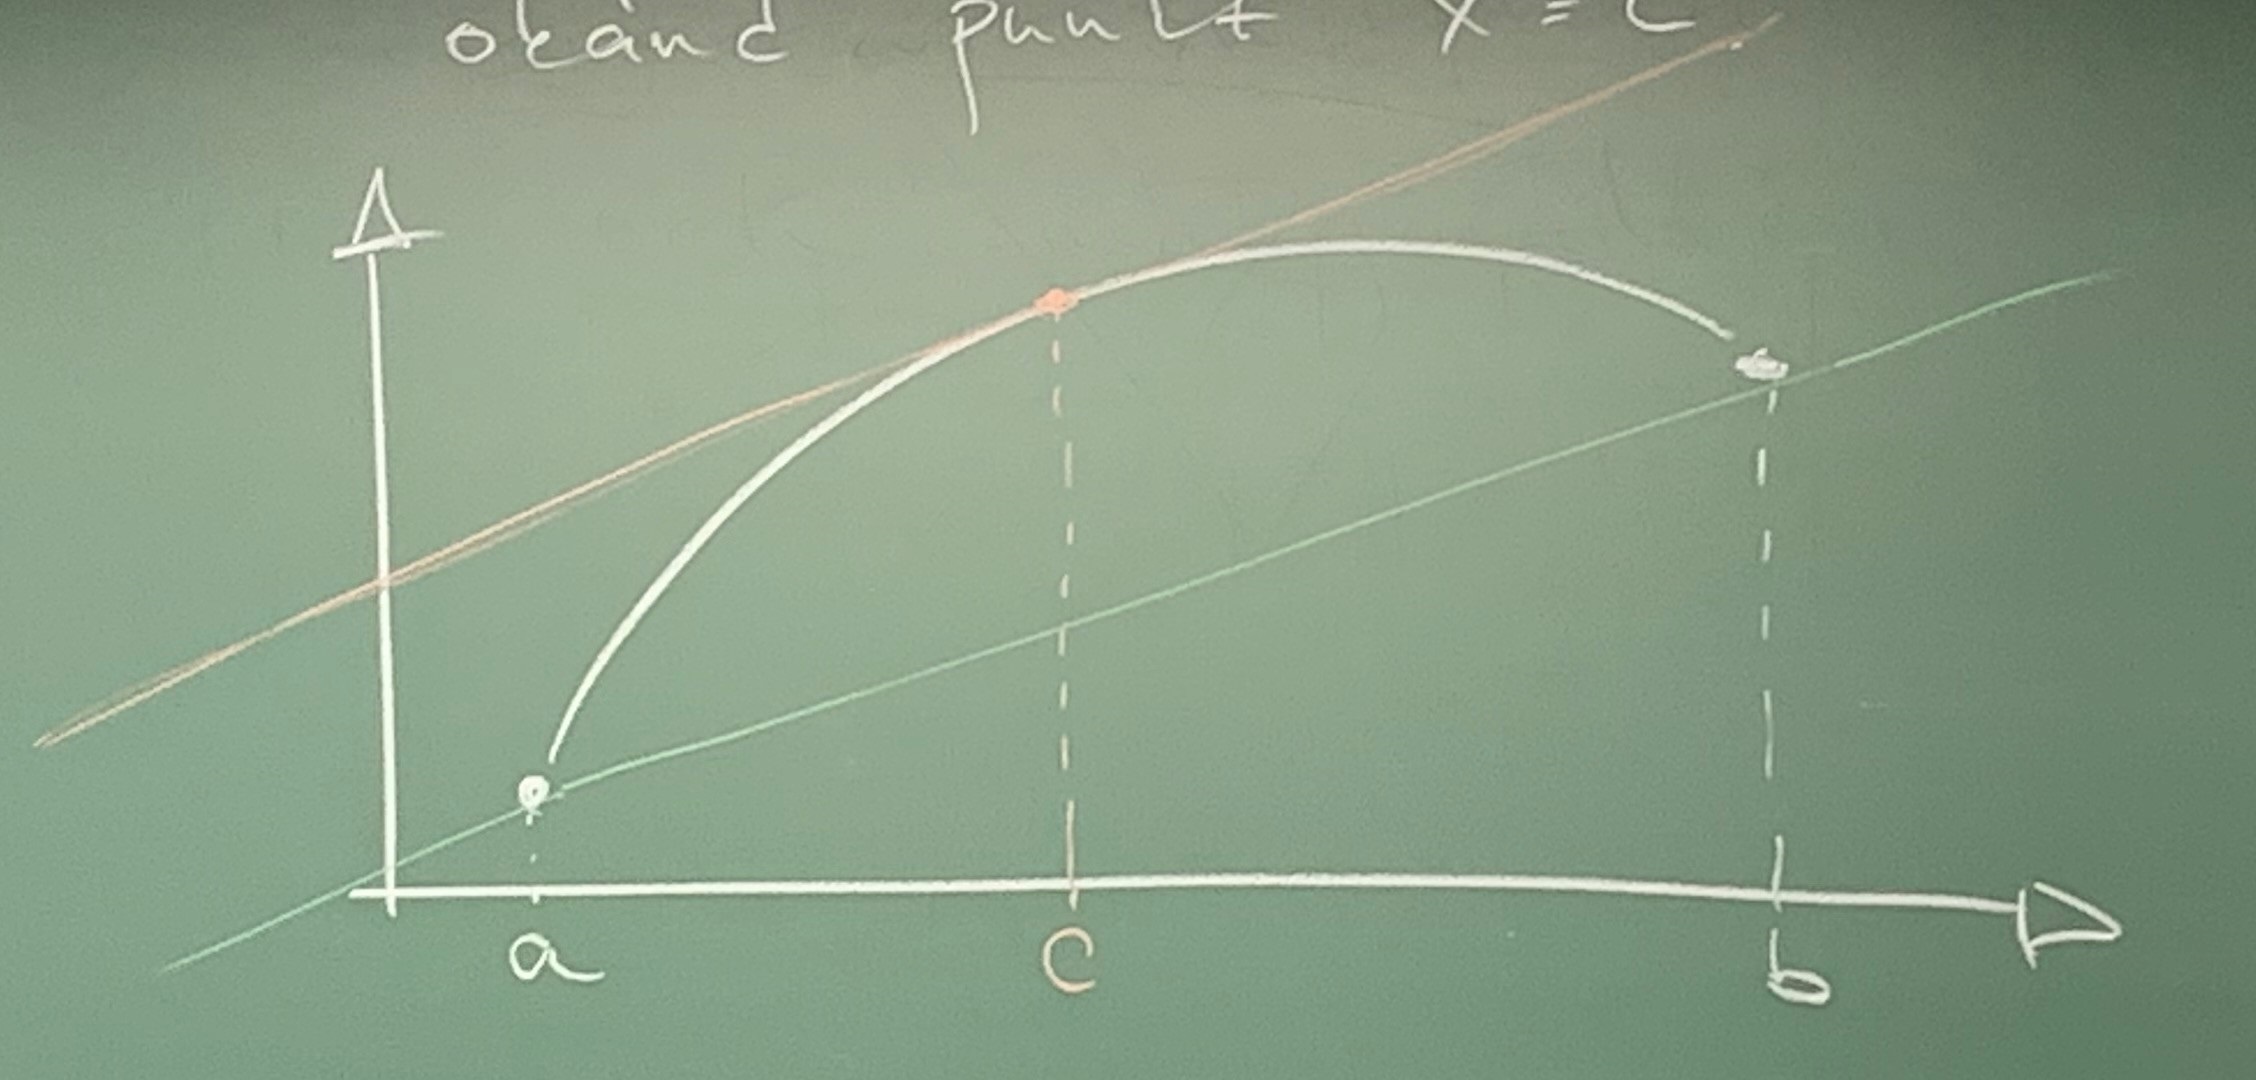 okänd punkt x = c
a c b